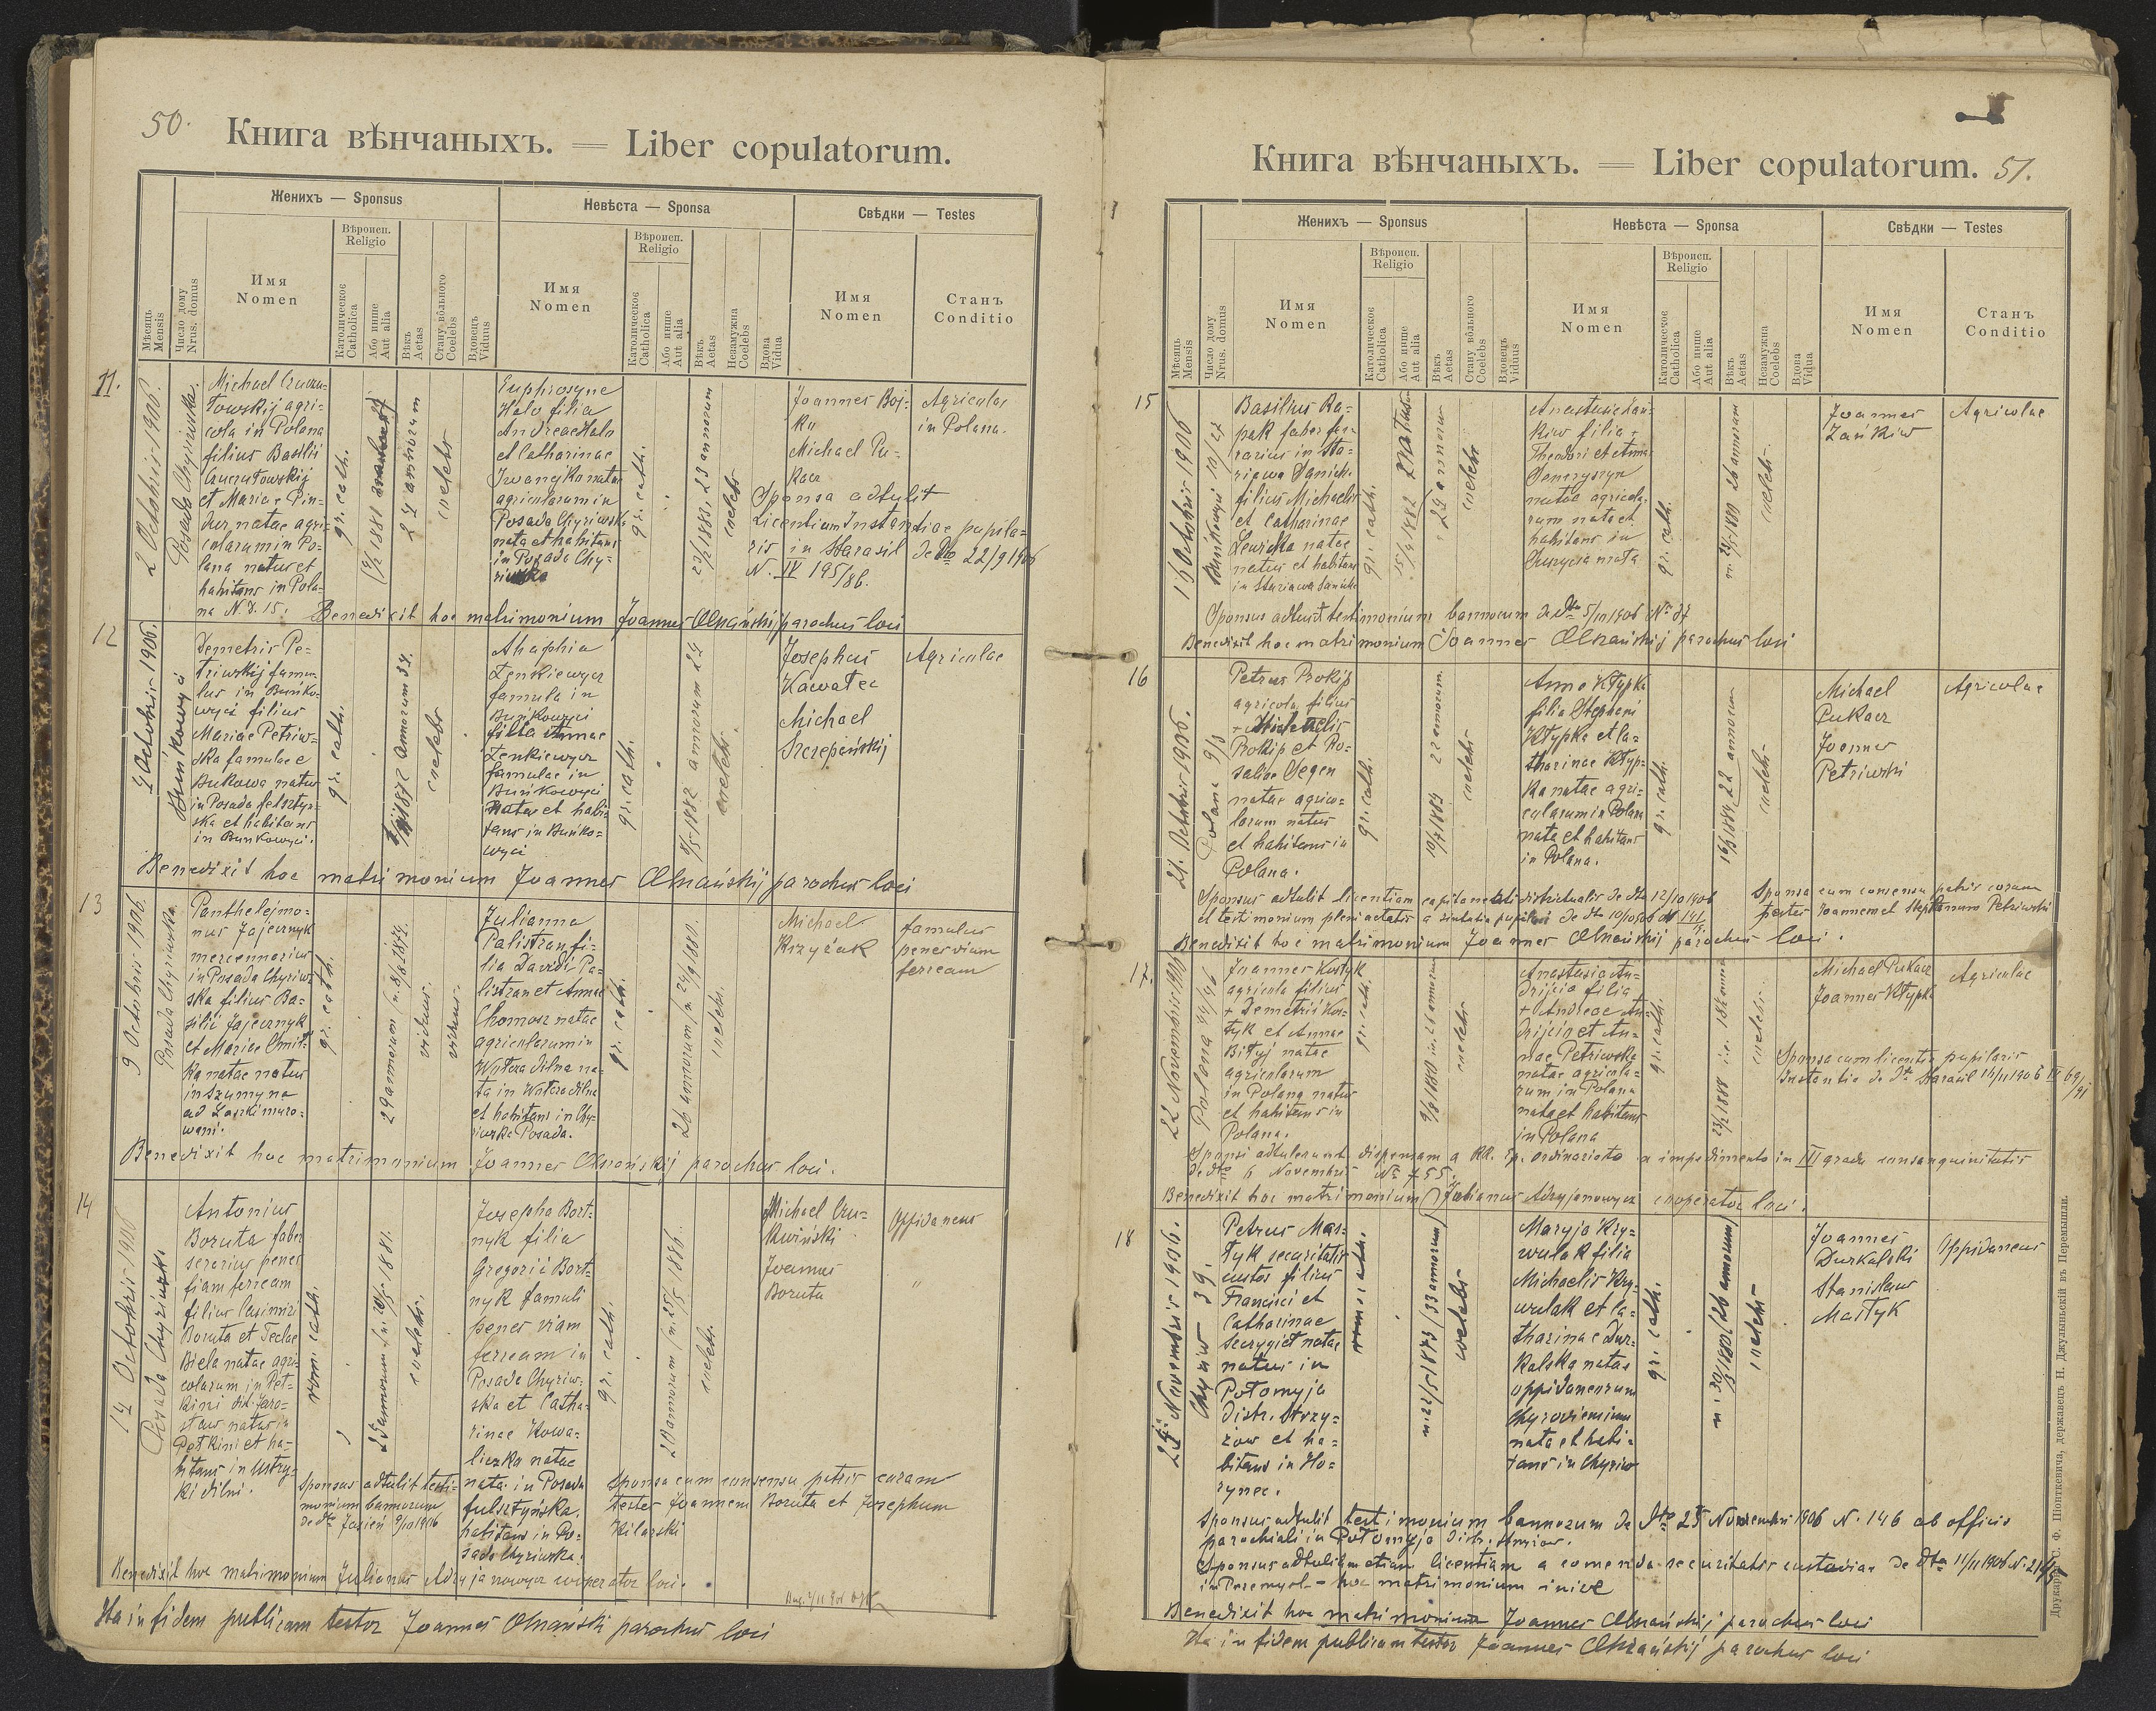 50.
Книга вѣнчаныхъ. = Liber copulatorum.
Женихъ — Sponsus
Невѣста — Sponsa
Свѣдки — Testes
Мѣсяць Mensis
Число дому Nrus. domus
Имя Nomen
Вѣроисп. Religio
Католическое Catholica
Або инше Aut alia
Вѣкъ Aetas
Стану вôльного Coelebs
Вдовець Viduus
Имя Nomen
Вѣроисп. Religio
Католическое Catholica
Або инше Aut alia
Вѣкъ Aetas
Незамужна Coelebs
Вдова Vidua
Имя Nomen
Станъ Conditio
11.
2 Octobris 1906.
Posada Chyriwska.
agri=
cola in Polana
filius Basilii
et Mariae
natae agri=
colarum in Po=
lana natus et
habitans in Pola=
na N. d. 15.
gr. cath.
24 annorum
coelebs
Euphrosyne
Halo filia
Andreae Halo
et Catharinae
natae
agricolarum in
Posada Chyriwska
nata et habitans
in Posada Chy=
riwska
gr. cath.
23 annorum
coelebs
Joannes Boj=
ko
Michael Pu=
kacz
Agricolae
in Polana.
Sponsa adtulit
Licentiam Instantiae pupila=
ris in Starasil de dto 22/9 1906
N. IV 195/86.
Benedixit hoc matrimonium Joannes Olszańskij parochus loci
12
Octobris 1906.
Buńkowyci
Demetris Pe=
triwskij famu=
lus in Buńko=
wyci filius
Mariae Petriw=
ska famulae e
Bukowa natus
in Posada felsztyn=
ska et habitans
in Bunkowyci.
gr. cath.
annorum 34.
coelebs
Ahaphia
Zenkiewycz
famula in
Buńkowyci
filia Annae
Zenkiewycz
famulae in
Buńkowyci
nata et habi=
tans in Buńko=
wyci
gr. cath.
1882 annorum 24
coelebs
Josephus
Kawatec
Michael
Szczepańskij
Agricolae
Benedixit hoc matrimonium Joannes Olszańskij parochus loci
13
9 Octobris 1906.
Posada Chyriwska
Panthelejmo=
nus Jajecznyk
mercennarius
in Posada Chyriw=
ska filius Ba=
silii Jajecznyk
et Mariae
natae natus
in Szumyna
ad Laszki muro=
wani.
gr. cath.
29 annorum
viduus.
Julianna
Palistran fi=
lia Davidi Pa=
listran et Annae
Chomosz natae
agricolarum in
Wolcza dilna na=
ta in Wolcza dilna
et habitans in Chy=
riwska Posada.
gr. cath.
26 annorum
coelebs.
Michael
Krzyčak
famulus
penes viam
ferream
Benedixit hoc matrimonium Joannes Olszańskij parochus loci.
14
14 Octobris 1906
Posada Chyriwska
Antonius
Boruta faber
serarius penes
viam ferream
filius Casimiri
Boruta et Teclae
Biela natae agri=
colarum in Pet=
kini dis. Jaro=
slaw natus in
Petkini et ha=
bitans in Ustrzy=
ki dilni.
rom. cath.
25 annorum
coelebs.
Josepha Bort=
nyk filia
Gregorii Bort=
nyk famuli
penes viam
ferream in
Posada Chyriw=
ska et Catha=
rinae Kowa=
liczko natae
nata in Posada
fulsztyńska.
habitans in Po=
sada Chyriwska.
gr. cath.
20 annorum
coelebs.
Michael Cru=
kwiński
Joannes
Boruta
Oppidaneus
"
Sponsus adtulit testi=
monium bannorum
de dto Jasień 9/10 1906
Sponsa cum consensu patris coram
testes Joannem Boruta et Josephum
Kilarski
Benedixit hoc matrimonium Julianus Adryjanowycz cooperator loci.
Ita in fidem publicam testor Joannes Olszański parochus loci
Книга вѣнчаныхъ. = Liber copulatorum. 51.
Женихъ — Sponsus
Невѣста — Sponsa
Свѣдки — Testes
Мѣсяць Mensis
Число дому Nrus. domus
Имя Nomen
Вѣроисп. Religio
Католическое Catholica
Або инше Aut alia
Вѣкъ Aetas
Стану вôльного Coelebs
Вдовець Viduus
Имя Nomen
Вѣроисп. Religio
Католическое Catholica
Або инше Aut alia
Вѣкъ Aetas
Незамужна Coelebs
Вдова Vidua
Имя Nomen
Станъ Conditio
15
16 Octobris 1906
Basilius Ra=
pak faber fer=
rarius in Sta=
riawa
filius Michaelis
et Catharinae
Lewicka natae
natus et habitans
in Stariawa
gr. cath.
24 annorum
coelebs
Anastasia Zań=
kiw filia +
Theodori et Annae
natae agricola=
rum nata et
habitans in
gr. cath.
26 annorum
coelebs
Joannes
Zańkiw
Agricolae
Sponsus adtulit testimonium bannorum de dto 5/10 1906 No 37
Benedixit hoc matrimonium Joannes Olszańskij parochus loci
16
21. Octobris 1906.
Polana
Petrus Prokip
agricola, filius
+ Michaelis
Prokip et Ro=
saliae Segen
natae agrico=
larum natus
et habitans in
Polana.
gr. cath.
10/7 1884 22 annorum.
coelebs
Anna Kłypka
filia Stephani
Kłypka et Ca=
tharinae Kłyp=
ka natae agri=
colarum in Polana
nata et habitans
in Polana.
gr. cath.
22 annorum
coelebs
Michael
Pukacz
Joannes
Petriwski
Agricolae
Sponsus adtulit licentiam capitaneatus districtualis de dto 12/10 1906
et testimonium pleni aetatis a
Sponsa cum consensu patris coram
testes Joannem et Stephanum Petriwski
Benedixit hoc matrimonium Joannes Olszańskij parochus loci.
17.
22 Novembris 1906
Polana
Joannes Kostyk
agricola filius
+ Demetrii Kos=
tyk et Annae
Bityj natae
agricolarum
in Polana natus
et habitans in
Polana.
gr. cath.
26 annorum
coelebs
Anastasia An=
drijcio filia
+ Andreae An=
drijcio et An=
nae Petriwska
natae agricola=
rum in Polana
nata et habitans
in Polana
gr. cath.
coelebs
Michael Pukacz
Joannes Kłypka
Agricolae
Sponsa cum licentia pupilaris
Instantia de dto Starasil 16/11 1906 IV 69/91
Sponsi adtulerunt dispensam a RR. Ep. Ordinariato a impedimento in III gradu consanguinitatis
de dto 6 Novembris No 755.
Benedixit hoc matrimonium Julianus Adryjanowycz cooperator loci.
18
25 Novembris 1906.
Chyriw 39.
Petrus Mas=
tyk securitatis
custos filius
Francisci et
Catharinae
natae
natus in
Potomyja
distr. Strzy=
żow et ha=
bitans in Ho=
rynec.
rom. cath.
n. 22/5 1873 / 33 annorum
coelebs
Maryja Kry=
wulak filia
Michaelis Kry=
wulak et Ca=
tharinae Dur=
kalska natae
oppidaneorum
Chyroviensium
nata et habi=
tans in Chyriw
gr. cath.
26 annorum
coelebs
Joannes
Durkalski
Stanislaus
Mastyk
Oppidaneus
Sponsus adtulit testimonium bannorum de dto 25 Novembris 1906 N. 146 ab officio
parochiali in Potomyja distr.
Sponsus adtulit etiam licentiam a comenda securitatis custodiae de dto 11/11 1906
in Peremysl - hoc matrimonium inire
Benedixit hoc matrimonium Joannes Olszańskij parochus loci
Ita in fidem publicam testor Joannes Olszańskij parochus loci
Друкарня С. Ф. Піонткевича, державець Н. Джулынскій въ Перемышли.